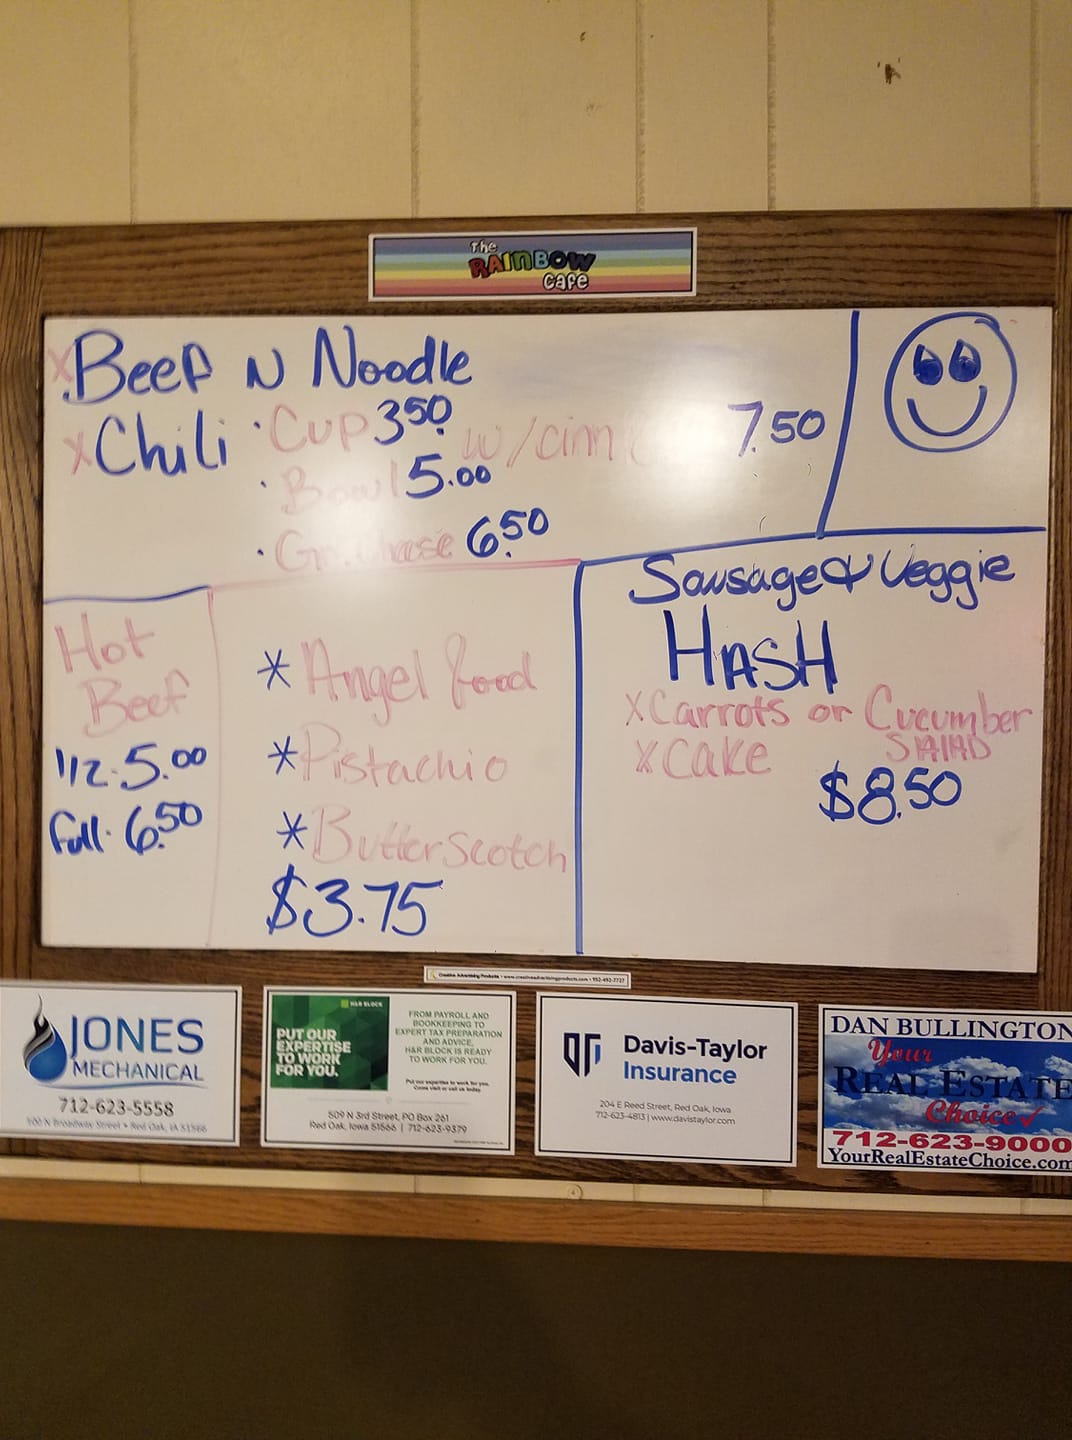 The
RAINBOW
Cafe
x Beef N Noodle
x Chili · Cup 3.50 w/cinn 7.50
· Bowl 5.00
· Gr. Cheese 6.50
Hot
Beef
1/2 · 5.00
full · 6.50
* Angel food
* Pistachio
* Butterscotch
$3.75
Sausage & Veggie
HASH
x Carrots or Cucumber
SALAD
x Cake
$8.50
Creative Advertising Products • www.creativeadvertisingproducts.com • 952-492-7727
JONES
MECHANICAL
712-623-5558
500 N Broadway Street • Red Oak, IA 51566
H&R BLOCK
PUT OUR
EXPERTISE
TO WORK
FOR YOU.
FROM PAYROLL AND
BOOKKEEPING TO
EXPERT TAX PREPARATION
AND ADVICE,
H&R BLOCK IS READY
TO WORK FOR YOU.
Put our expertise to work for you.
Come visit or call us today.
509 N 3rd Street, PO Box 261
Red Oak, Iowa 51566 | 712-623-9379
Davis-Taylor
Insurance
204 E Reed Street, Red Oak, Iowa
712-623-4813 | www.davistaylor.com
DAN BULLINGTON
Your
REAL ESTATE
Choice
712-623-9000
YourRealEstateChoice.com